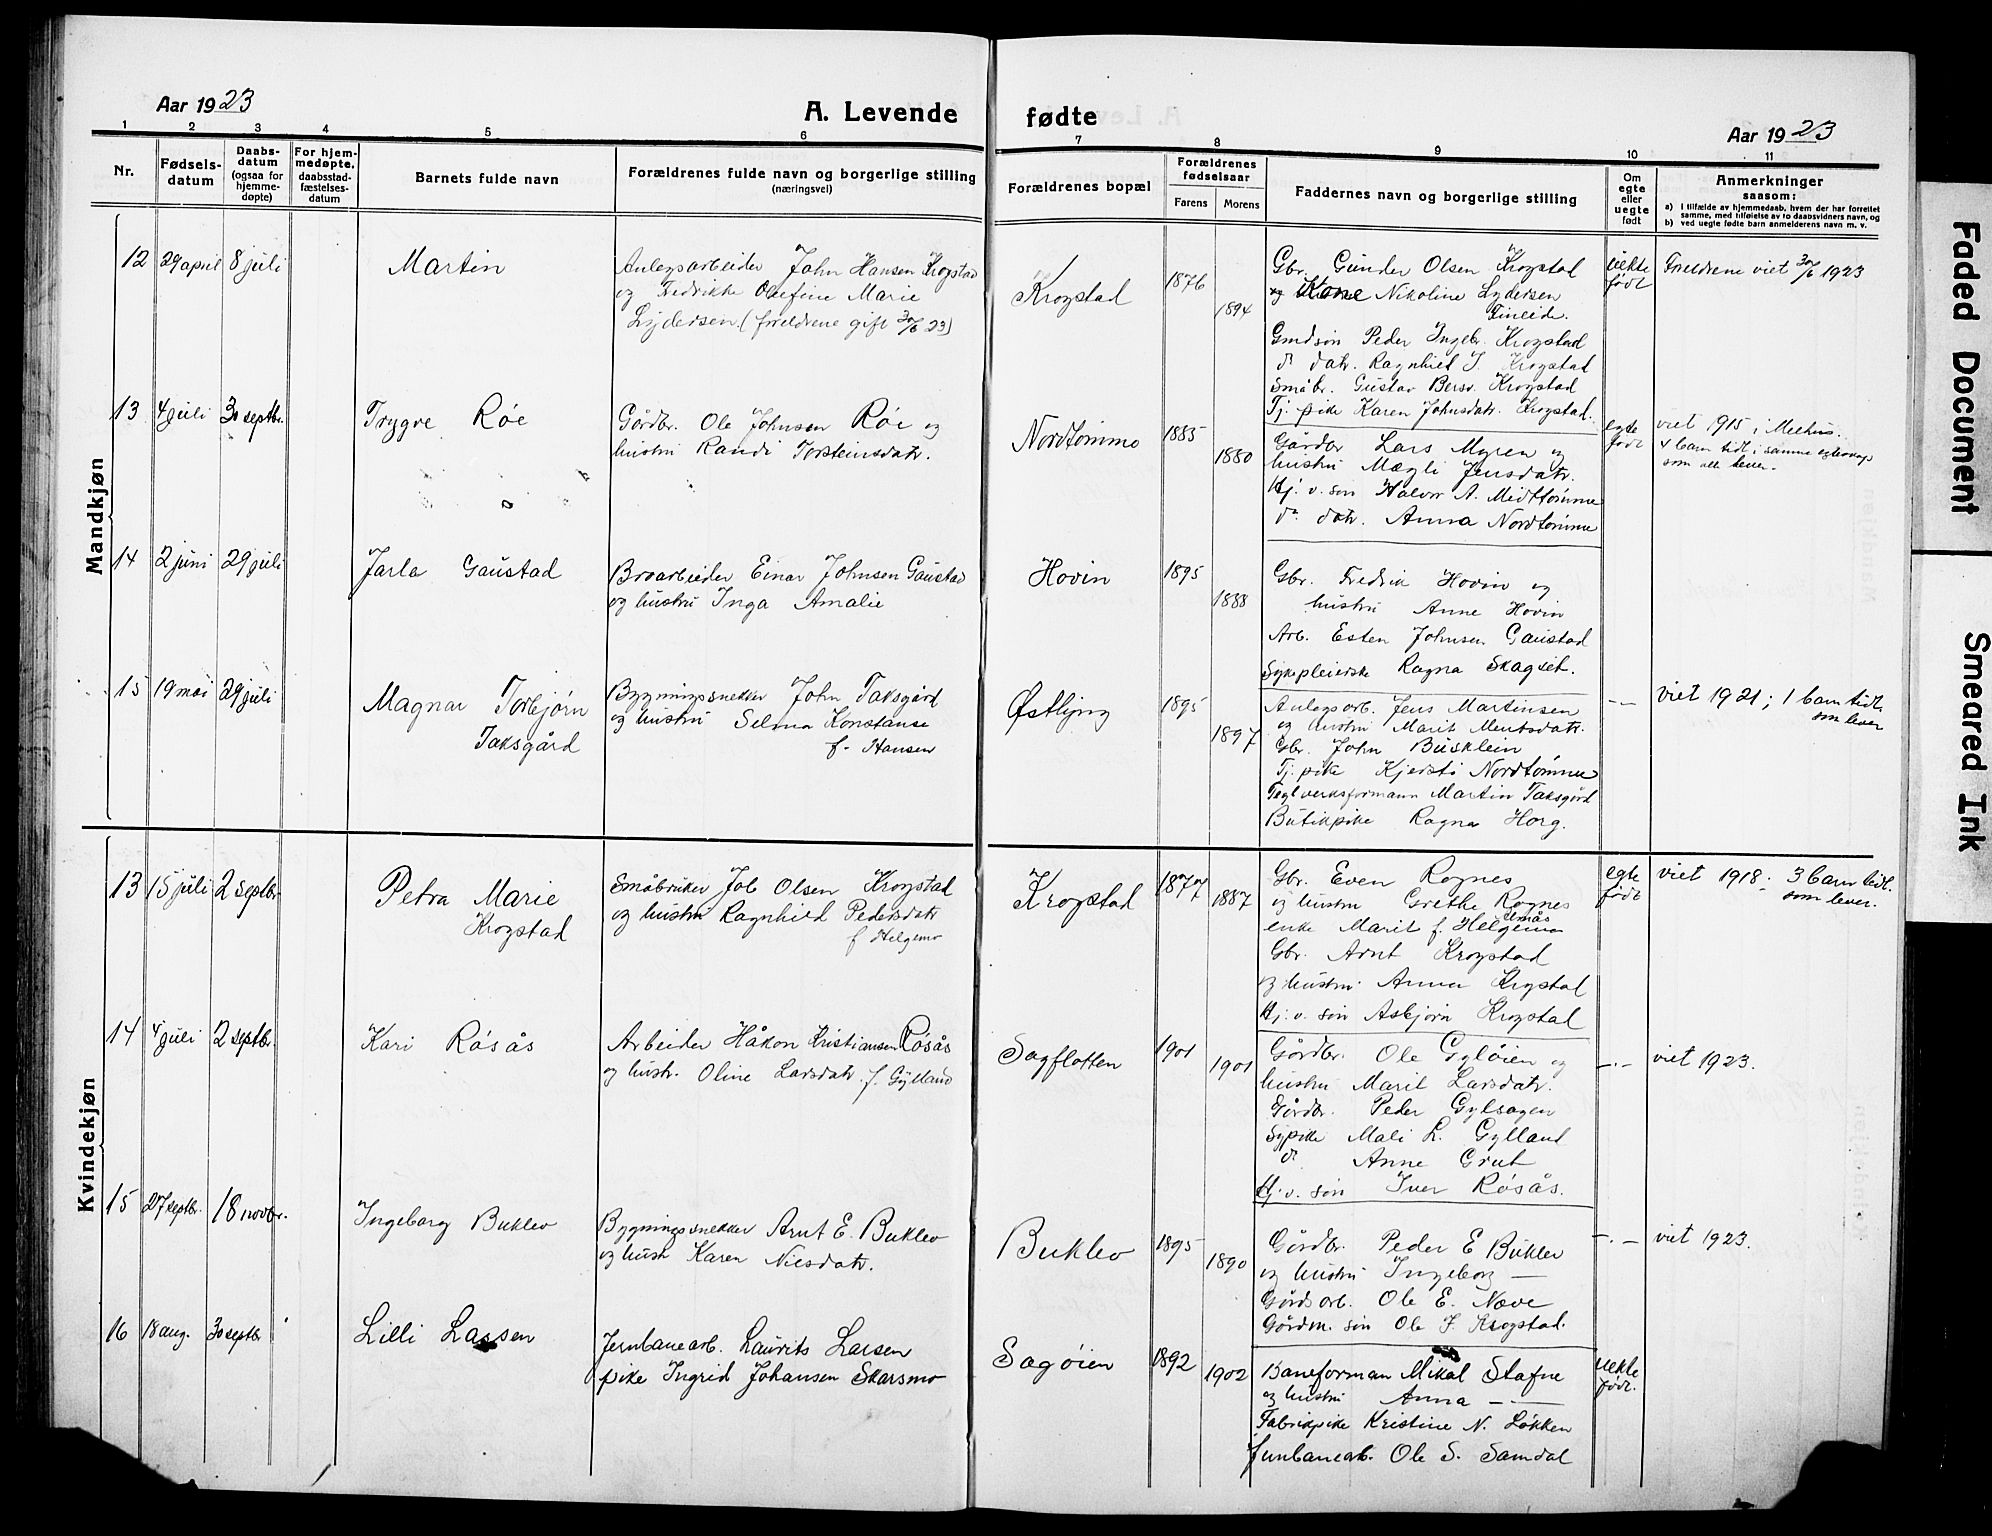 Aar 1923
A. Levende
fødte
Aar 1923
1 2 3 4 5 6 7 8 9 10 11
Nr.
Fødsels-
datum
Daabs-
datum
(ogsaa for
hjemme-
døpte)
For hjem-
medøpte,
daabsstad-
fæstelses-
datum
Barnets fulde navn
Forældrenes fulde navn og borgerlige stilling
(næringsvei)
Forældrenes bopæl
Forældrenes
fødselsaar
Farens Morens
Faddernes navn og borgerlige stilling
Om
egte
eller
uegte
født
Anmerkninger
saasom:
a) I tilfælde av hjemmedaab, hvem der har forrettet
samme, med tilføielse av to daabsvidners navn, og
b) ved uegte fødte barn anmelderens navn m. v.
Mandkjøn
12 29 april 8 juli
Martin
Anlegsarbeider John Hansen Krogstad
og Fredrikke Olefine Marie
Lydersen. (foreldrene gift 30/6 23)
Krogstad
1876
1894
Gbr. Gunder Olsen Krogstad
og Kone Nikoline Lydersen
Gmdsön Peder Ingebr. Krogstad
do datr. Ragnhild J. Krogstad
Småbr. Gustav Bersv. Krogstad
Tj. pike Karen Johnsdatr. Krogstad.
uekte
født
Foreldrene viet 30/6 1923
13 4 juli 30 septbr.
Trygve Röe
Gårdbr. Ole Johnsen Röe og
hustru Randi Torsteinsdatr.
Nordtömme
1885
1880
Gårdbr Lars Myren og
hustru Mægli Jensdatr.
Hj. v. sön Halvor A. Midttömme
do datr. Anna Nordtömme
egte
født
viet 1915 i Melhus.
4 barn tidl. i samme egteskap
som alle lever.
14 2 juni 29 juli
Jarle Gaustad
Broarbeider Einar Johnsen Gaustad
og hustru Inga Amalie
Hovin
1895
1888
Gbr. Fredrik Hovin og
hustru Anne Hovin
Arb. Esten Johnsen Gaustad
Sykepleierske Ragna Skagset.
15 19 mai 29 juli
Magnar Torbjørn
Taksgård
Bygningssnekker John Taksgård
og hustru Selma Konstanse
f. Hansen
Østlyng
1895
1897
Anlegsarb. Jens Martinsen
og hustru Marit Mentsdatr.
Gbr. John Busklein
Tj. pike Kjersti Nordtömme
Teglverksformann Martin Taksgård
Butikpike Ragna Horg.
-"-
viet 1921; 1 barn tidl.
som lever
Kvindekjøn
13 15 juli 2 septbr
Petra Marie
Krogstad
Småbruker Job Olsen Krogstad
og hustru Ragnhild Pedersdatr
f Helgemo
Krogstad
1877
1887
Gbr. Even Rognes
og hustru Grethe Rognes
enke Marit f. Helgemo
Gbr. Arnt Krogstad
og hustru Anna Krogstad
Hj. v. sön Asbjörn Krogstad
egte
født
viet 1918. 3 barn tidl.
som lever.
14 4 juli 2 septbr.
Kari Rösås
Arbeider Håkon Kristiansen Rösås
og hustr. Oline Larsdatr. f. Gylland
Sagflotten
1901
1901
Gårdbr. Ole Gylöien og
hustru Marit Larsdatr.
Gårdbr. Peder Gylsagen
Sypike Mali L. Gylland
do Anne Grut
Hj. v. sön Iver Rösås.
-"-
viet 1923.
15 27 septbr. 18 novbr.
Ingeborg Buklev
Bygningssnekker Arnt E. Buklev
og hustr Karen Nilsdatr.
Buklev
1895
1890
Gårdbr. Peder E Buklev
og hustru Ingeborg —
Gårdsarb. Ole E. Næve
Gårdm. sön Ole J. Krogstad.
-"-
viet 1923.
16 18 aug. 30 septbr
Lilli Lassen
Jernbanearb. Laurits Larsen
pike Ingrid Johansen Skarsmo
Sagöien
1892
1902
Baneforman Mikal Stafne
og hustru Anna —
Fabrikpike Kristine N. Løkken
Jernbanearb. Ole S. Samdal
uekte
født.
Faded Document
Smeared Ink